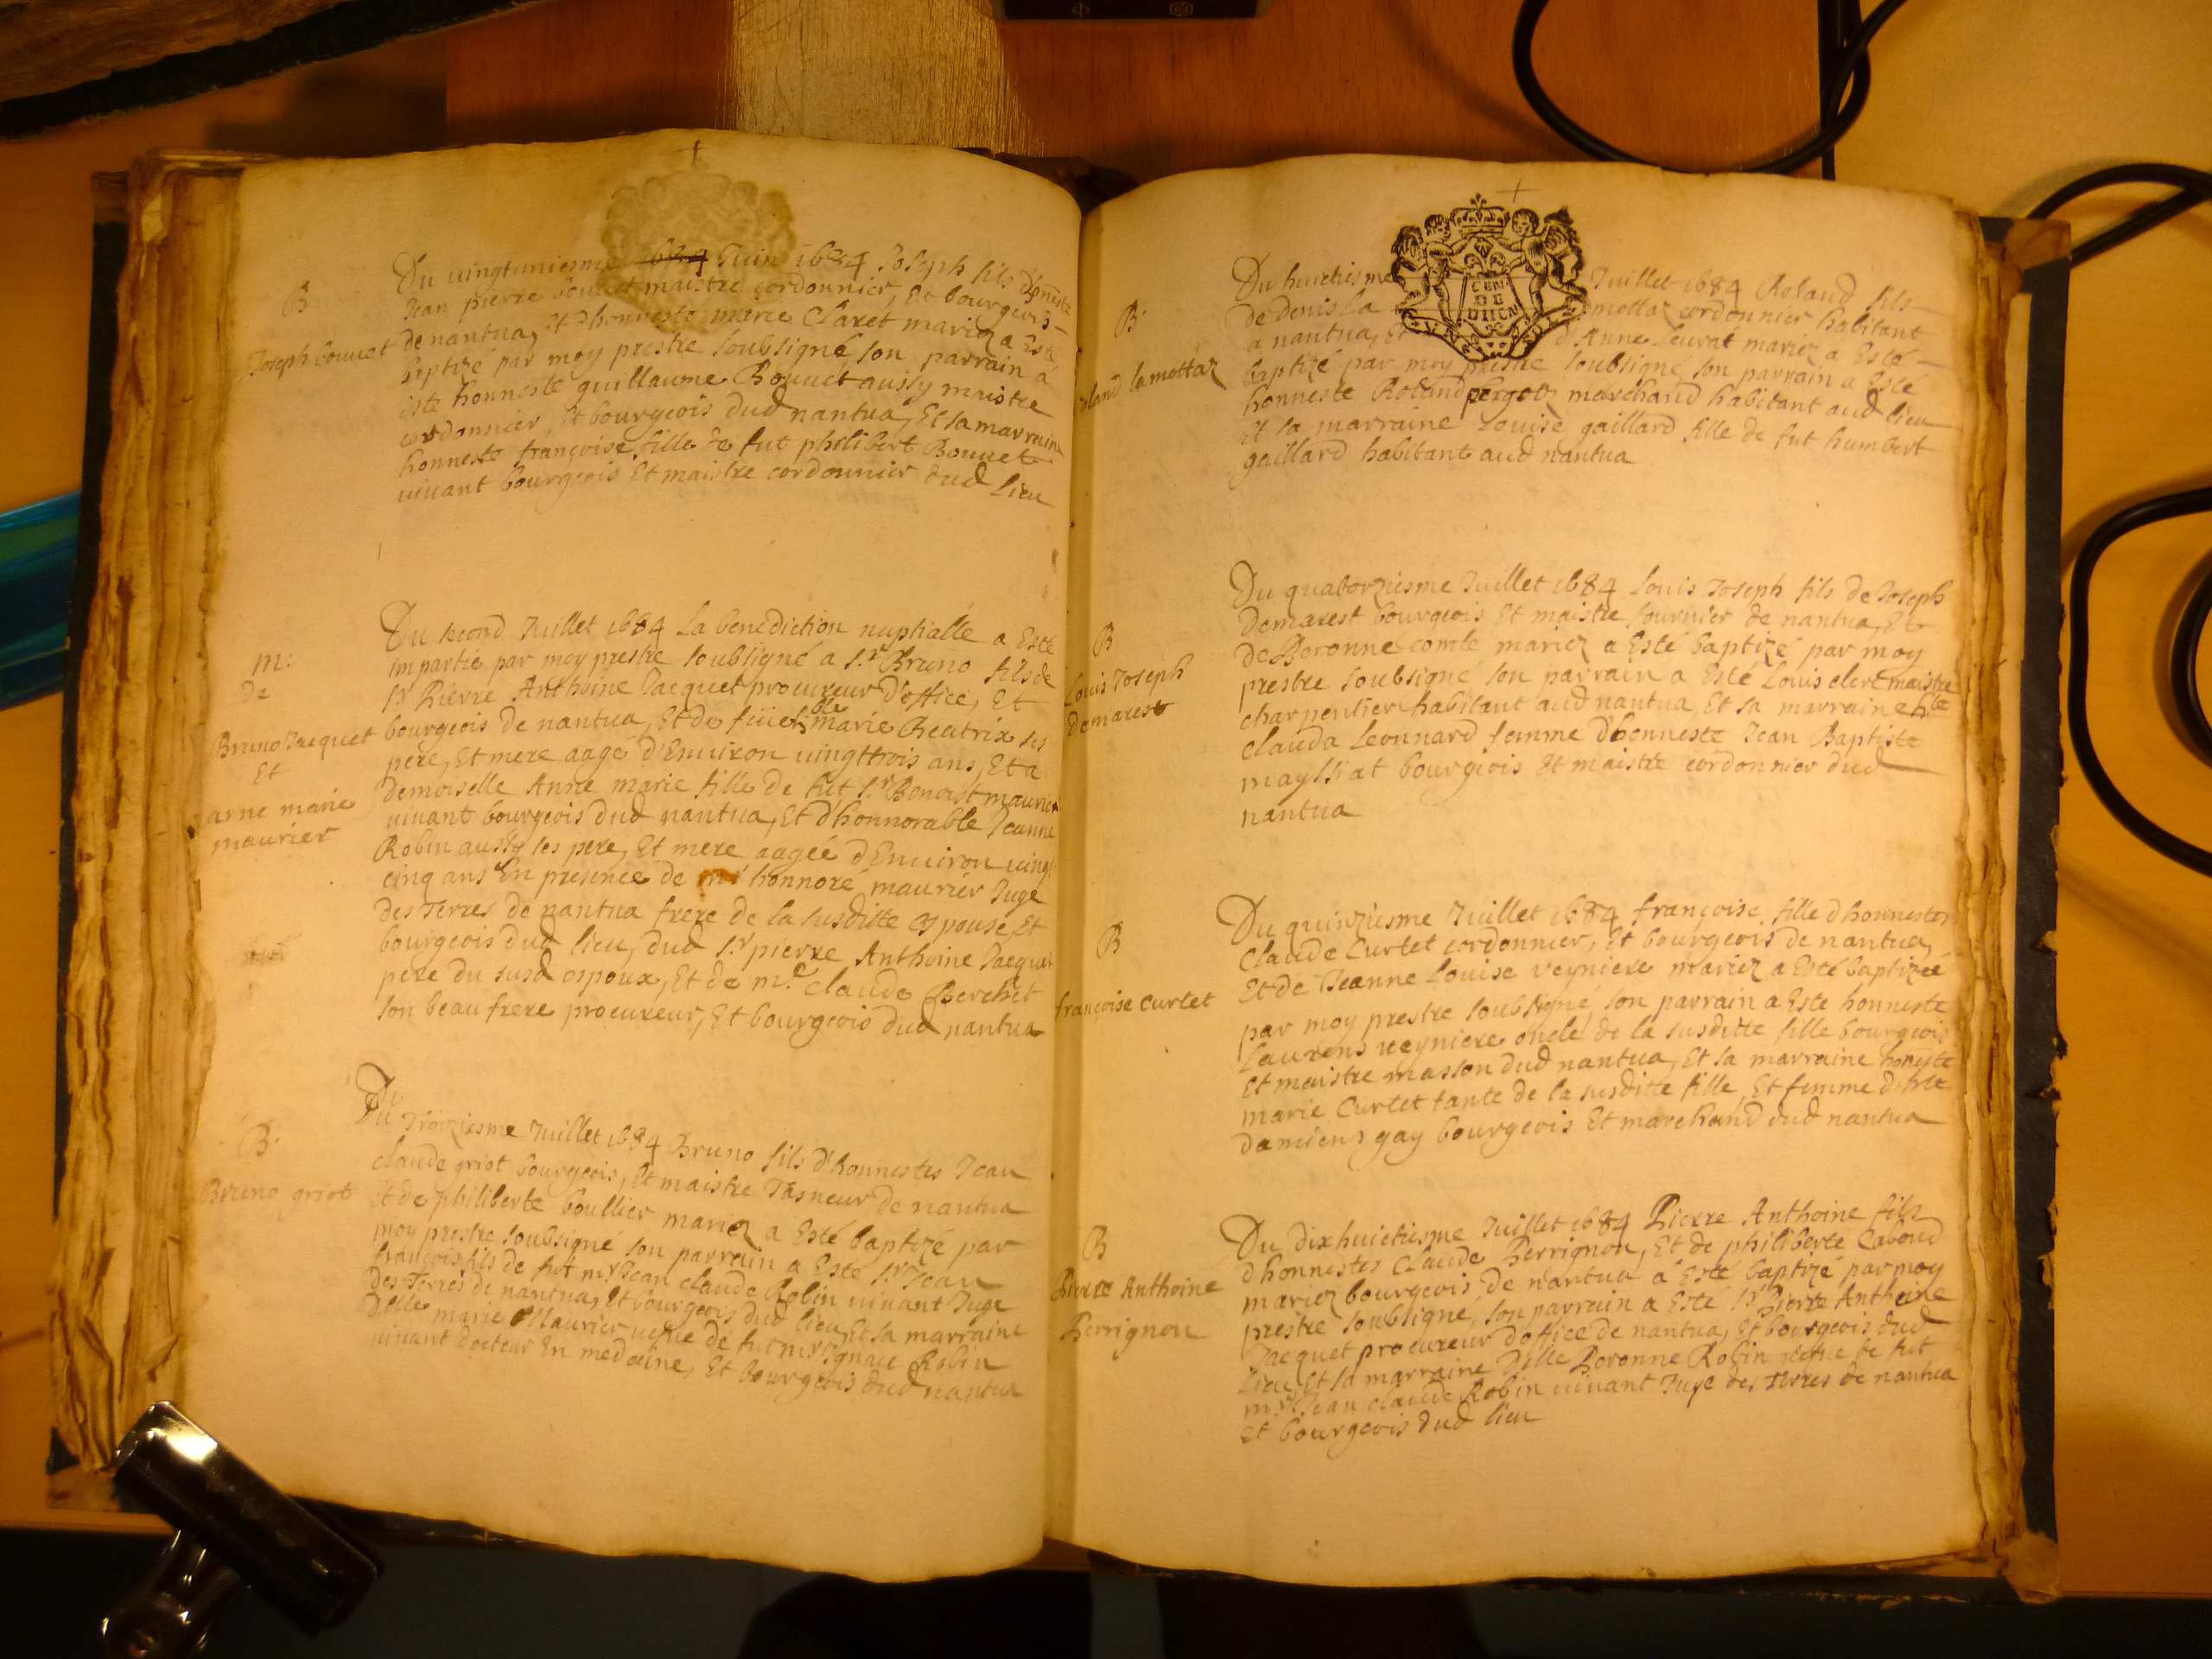 Du vingtuniesme 1684 Juin 1684 Joseph fils d'honneste
B
Jean pierre bouuet maistre cordonnier, Et bourgeois
Joseph bouuet
de nantua, Et d'honneste marie Claret mariez a Esté
baptizé par moy prestre soubsigné son parrain à
esté honneste guillaume Bouuet aussy maistre
cordonnier, Et bourgeois dud nantua, Et sa marraine
honneste françoise fille de fut philibert Bouuet
viuant bourgeois Et maistre cordonnier dud lieu
m:
De
Bruno Jacquet
Et
anne marie
maurier
Du second Juillet 1684 La benediction nuptialle a Esté
impartie par moy prestre soubsigné a Sr Bruno fils de
Sr Pierre Anthoine Jacquet procureur d'office, Et
bourgeois de nantua, Et de marie Beatrix ses
pere, Et mere aage d'Enuiron vingttrois ans, Et a
demoiselle Anne marie fille de fut Sr Benoist maurier
viuant bourgeois dud nantua, Et d'honnorable Jeanne
Robin aussy ses pere, Et mere aagée d'Enuiron vingt
cinq ans En presence de mr honnoré maurier Juge
des Terres de nantua frere de la susditte espouse, Et
bourgeois dud lieu, dud Sr pierre Anthoine Jacquet
pere du susd espoux, Et de me claude Berchet
son beau frere procureur, Et bourgeois dud nantua
B
Bruno griot
Du Troiziesme Juillet 1684 Bruno fils d'honnestes Jean
claude griot bourgeois, Et maistre Tasneur de nantua
Et de philiberte boullier mariez a Esté baptizé par
moy prestre soubsigné son parrain a Esté Sr Jean
françois fils de fut mr Jean claude Robin viuant Juge
des Terres de nantua, Et bourgeois dud lieu, Et sa marraine
Dlle marie Maurier vefue de fut mr Ignace Robin
viuant docteur En medecine, Et bourgeois dud nantua
B
Roland lamottaz
GEN
DE
DIION
Du huictiesme Juillet 1684 Roland fils
de denis La mottaz cordonnier habitant
a nantua, Et d'Anne leurat mariez a Esté
baptizé par moy prestre soubsigné son parrain a Esté
honneste Roland pergoz marchand habitant aud lieu
Et sa marraine Louise gaillard fille de fut humbert
gaillard habitant aud nantua
B
Louis Joseph
Demarest
Du quatorziesme Juillet 1684 Louis Joseph fils de Joseph
Demarest bourgeois Et maistre fournier de nantua, Et
de Peronne comte mariez a Esté baptizé par moy
prestre soubsigné son parrain a Esté Louis clerc maistre
charpentier habitant aud nantua, Et sa marraine hte
clauda Leonnard femme d'honneste Jean Baptiste
mayssiat bourgeois Et maistre cordonnier dud
nantua
B
françoise Curtet
Du quinziesme Juillet 1684 françoise fille d'honnestes
Claude Curtet cordonnier, Et bourgeois de nantua,
Et de Jeanne Louise veyniere mariez a Esté baptizée
par moy prestre soubsigné, son parrain a Esté honneste
Laurens veyniere oncle de la susditte fille bourgeois
Et maistre masson dud nantua, Et sa marraine honeste
marie Curtet tante de la susditte fille, Et femme d'hte
damiens gay bourgeois Et marchand dud nantua
B
Pierre Anthoine
Perrignon
Du dixhuictiesme Juillet 1684 Pierre Anthoine fils
d'honnestes Claude Perrignon, Et de philiberte Caboud
mariez bourgeois de nantua a Esté baptizé par moy
prestre soubsigné, son parrain a Esté Sr Pierre Anthoine
Jacquet procureur d'office de nantua, Et bourgeois dud
Lieu, Et sa marraine Dlle Peronne Robin vefue de fut
mr Jean claude Robin viuant Juge des Terres de nantua
Et bourgeois dud lieu